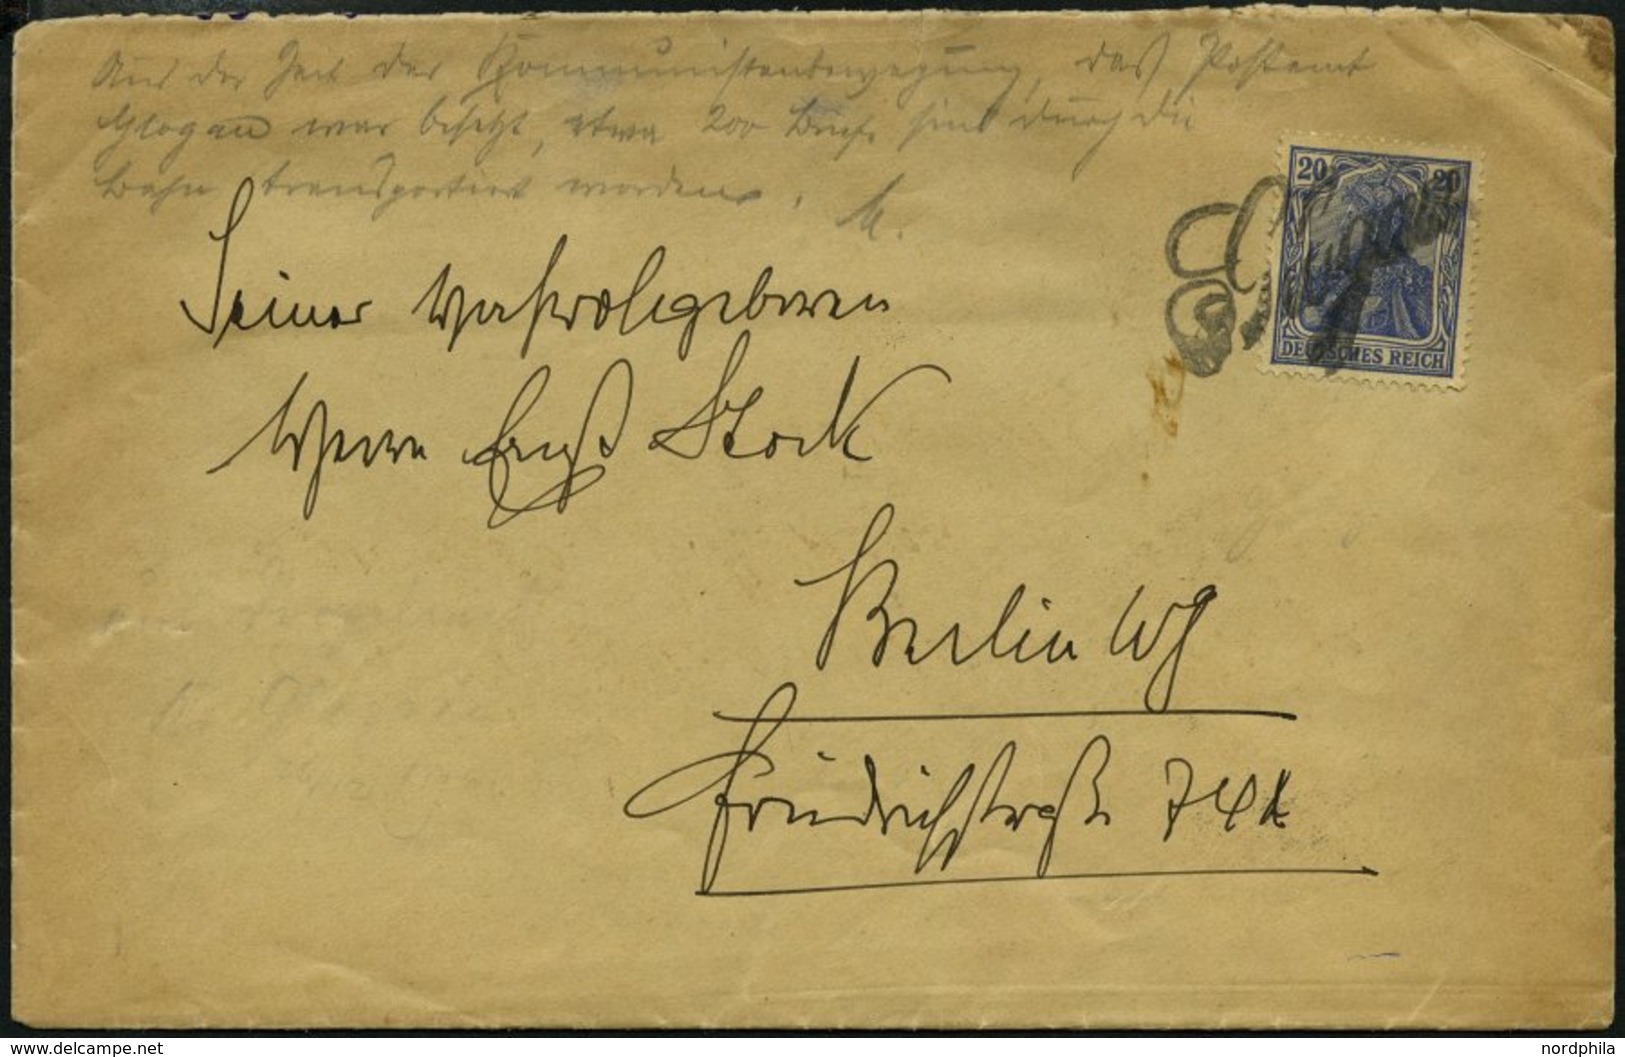 Aus der Zeit der Kommunistenbewegung, das Postamt
Glogau war besetzt, etwa 200 Briefe sind durch die
Bahn transportiert worden.
20 20
DEUTSCHES REICH
Glogau
Seiner Hochwohlgeboren
Herrn Ernst Stock
Berlin W8
Friedrichstraße 74
© nordphila on delcampe.net
nordphila